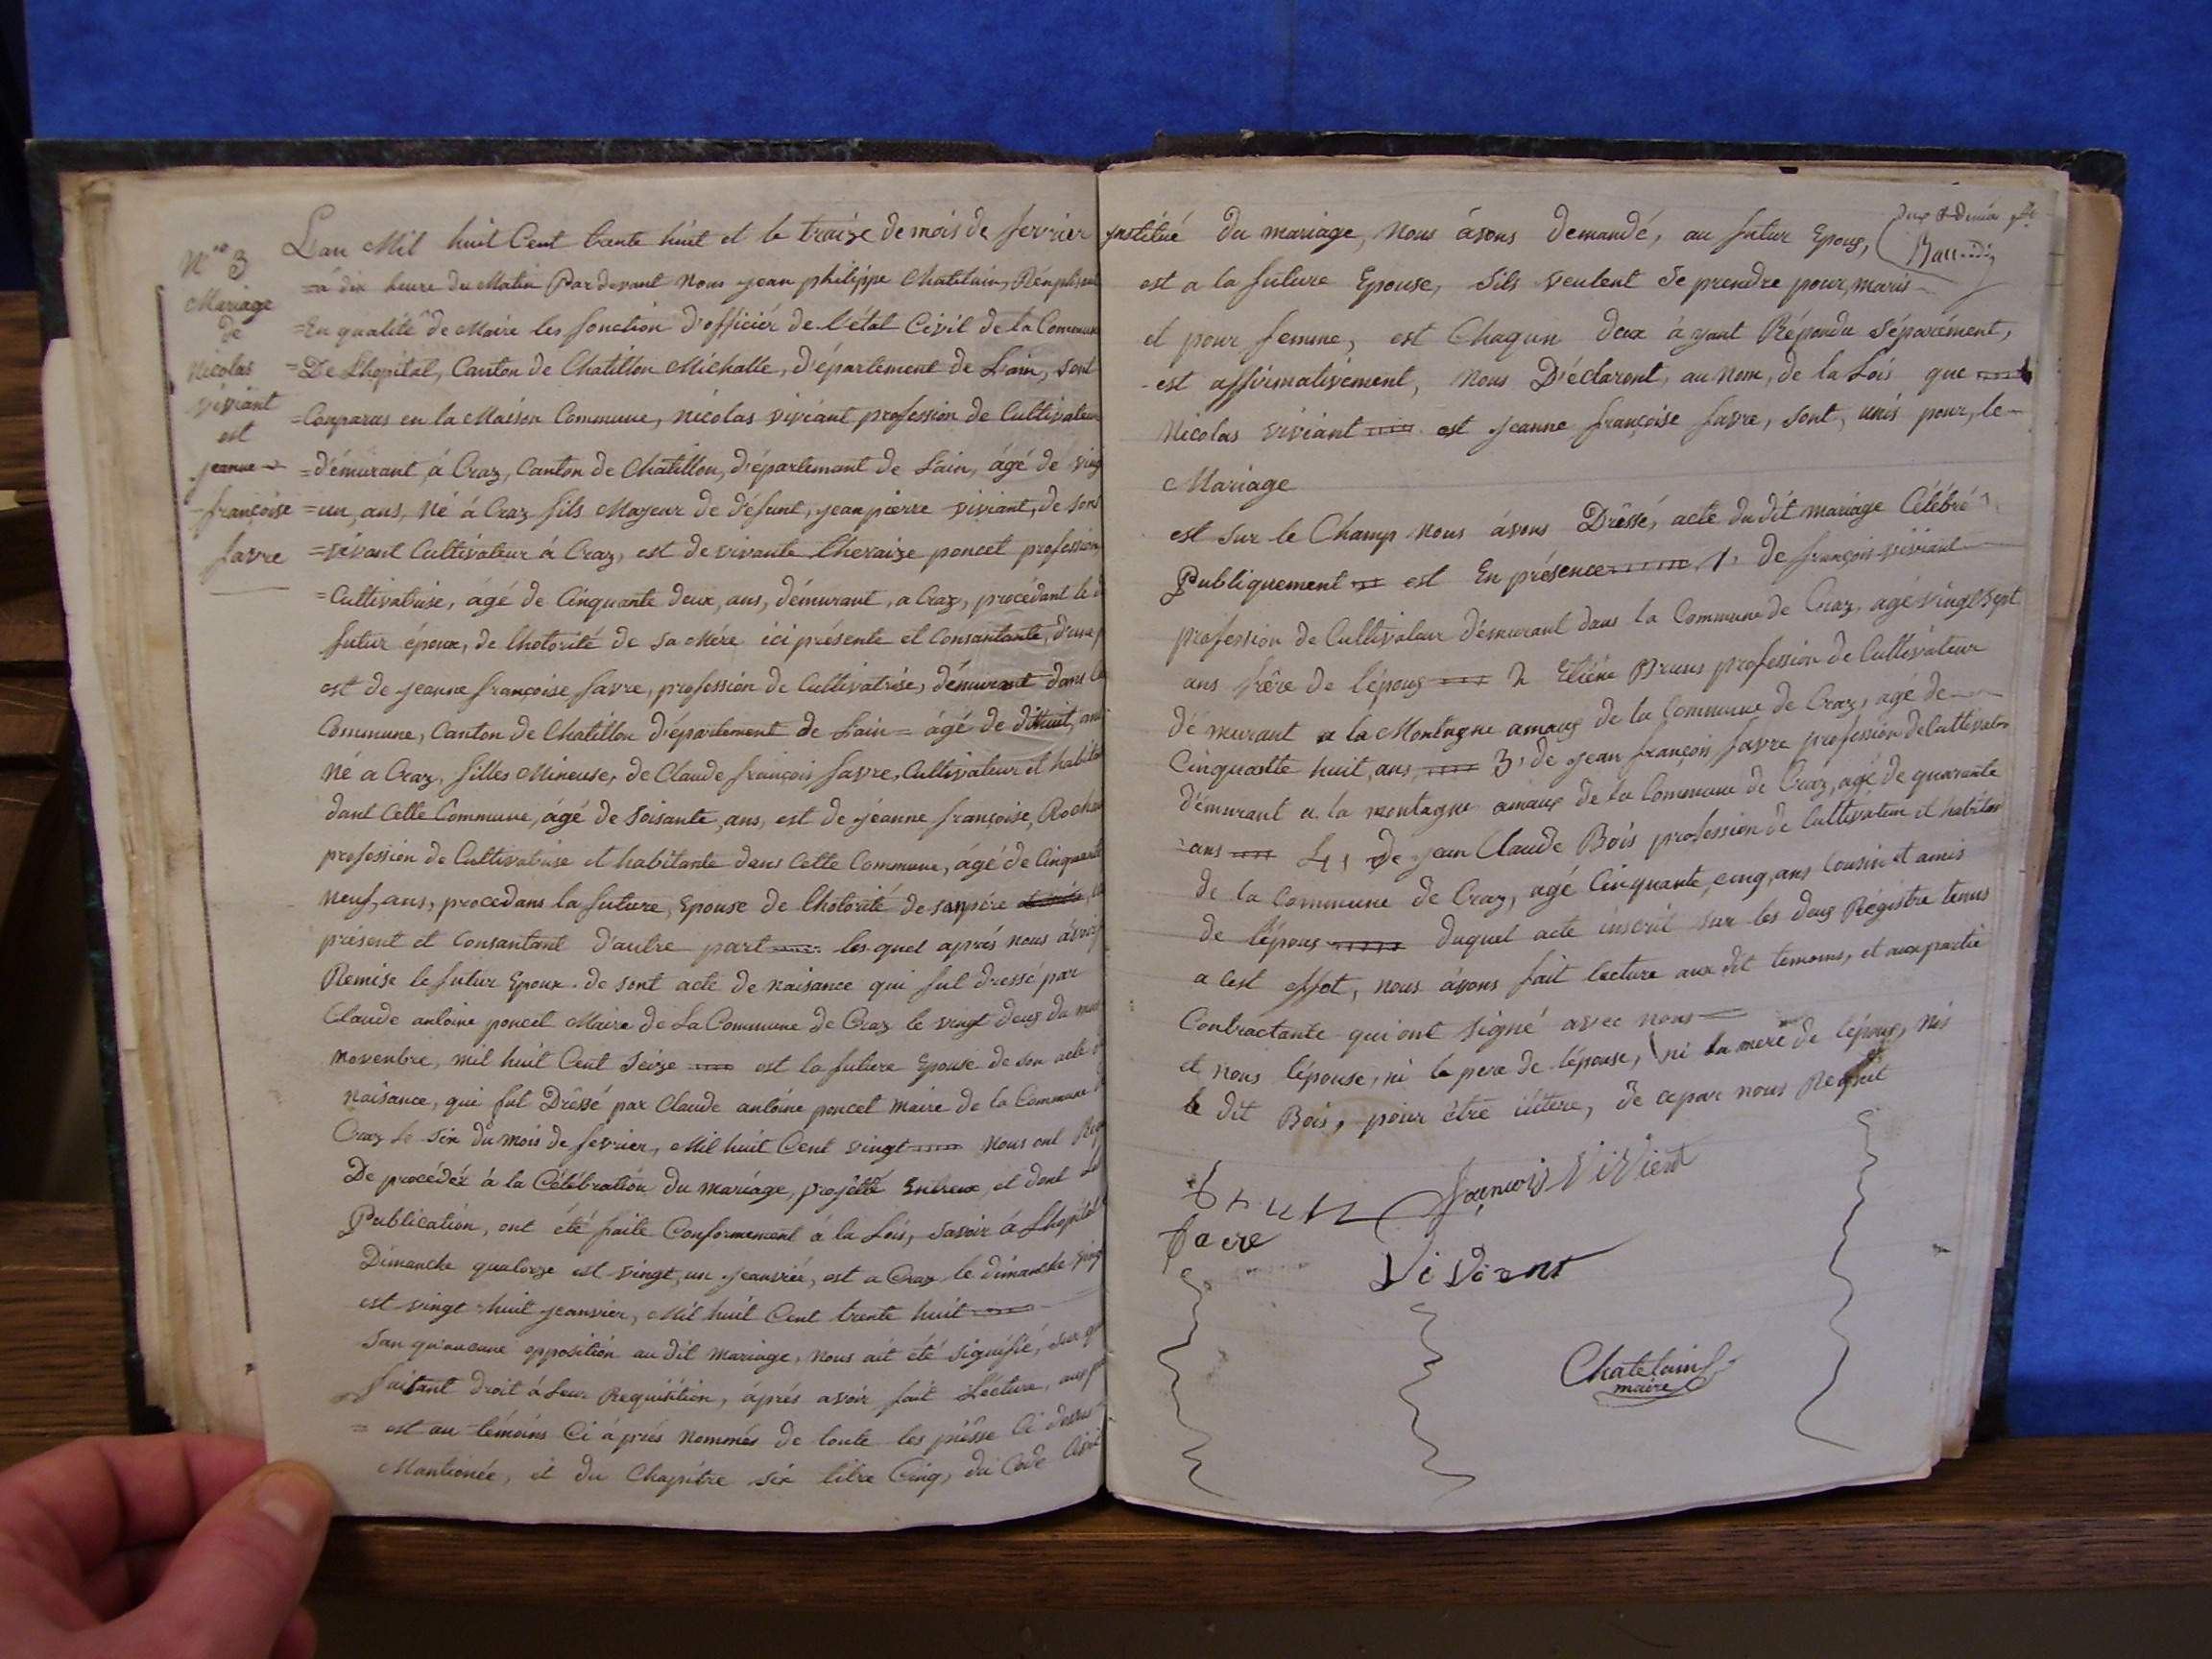 N.ro 3
Mariage
de
Nicolas
viviant
est
jeanne
françoise
favre
L'an Mil huit Cent trente huit et le traize de mois de fevrier
=à dix heure du Matin Pardevant Nous jean philippe Chatelain, Rémplissant
=En qualité de Maire les fonction d'officiér de l'état Civil de la Commune
=De Lhopital, Canton de Chatillon Michalle, d'épartement de Lain, sont
=Conparus en la Maison Commune, nicolas viviant profession de Cultivateur
=d'émurant à Craz, Canton de Chatillon, d'épartemant de Lain, ágé de ving
=un, ans, Né à Craz fils Majeur de Défunt, jean pierre viviant, de son
=vivant Cultivateur à Craz, est de vivante theraize poncet profession
=Cultivatrise, ágé de Cinquante deux, ans, démurant, a Craz, procédant le d
futur époux, de lhotorité de sa Mére ici présente et Consantante, d'une p
est de jeanne françoise favre, profession de Cultivatrise, démurant dans la
Commune, Canton de Chatillon d'épartement de Lain = ágé de dithuit, ans
Né a Craz, filles Mineuse, de Claude françois favre, Cultivateur et habita
dant Cette Commune, ágé de soisante, ans, est de jéanne françoise, Rochai
profession de Cultivatrise et habitante dans Cette Commune, ágé de Cinquante
Neuf, ans, procedans la future, Epouse de lhotorité de son pére
présent et Consantant d'autre part les quel aprés nous ávoir
Remise le futur Epoux de sont acte de naisance qui fut dressé par
Claude antoine poncet Maire de La Commune de Craz le vingt deux du mois
novenbre, mil huit Cent seize est la future Epouse de son acte d
naisance, qui fut Dréssé par Claude antoine poncet maire de la Commune d
Craz le six du mois de fevrier, Mil huit Cent vingt Nous ont Req
De procédéz à la Célébration du mariáge, projétté Entreux, et dont Les
Publication, ont été faite Conformement à la Lois, savoir à Lhopital
Dimanche qualorze est vingt, un jeanvié, est a Craz le dimanche ving
est vingt huit jeanvier, Mil huit Cent trente huit
San qu'aucune opposition au dit mariage, Nous ait été signifié, sur qu
faisant droit à Leur Requisition, aprés avoir fait Lécture, aux p
= est au témoins Ci á prés nommés de toute les piésse Ci dessus
Mantionée, et du Chapitre six titre Cinq, du Code Civil
jnstitué du mariage, Nous ávons demandé, au futur Epoux,
est a la future Epouse, sils veulent se prendre pour, maris
et pour femme, est Chaqun deux à yant Répondu séparément,
est affirmativement, Nous D'éclaront, au Nom, de la Lois que
Nicolas viviant est jeanne françoise favre, sont, unis pour, le
Mariage
est sur le Champ nous ávons Dréssé, acte du dit mariage Célébré
Publiquement est En présence 1, de françois viviant
profession de Cultivateur d'émurant dans la Commune de Craz, agé vingt sept
ans frére de lépoux 2 Etiéne Bruns profession de Cultivateur
démurant a la Montagne amaux de la Commune de Craz, agé de
Cinquantte huit, ans, 3, de jean françois favre profession de Cultivateur
d'émurant a la montagne amaux de la Commune de Craz, agé de quarante
ans 4, de jean Claude Bois profession de Cultivateur et habitan
de la Commune de Craz, agé Cinquante, cinq, ans Cousin et amis
de lépoux duquel acte inscrit sur les deux Régistre tenus
a cest effet, nous ávons fait lecture aux dit temoins, et aux partie
Contractante qui ont signé avec nous
et nous lépouse, ni le pere de lépouse, ni la mere de lépoux, nis
le dit Bois, pour étre iltere, de ce par nous Requit
brun françois ViVient
favre
ViVient
Chatelain
maire